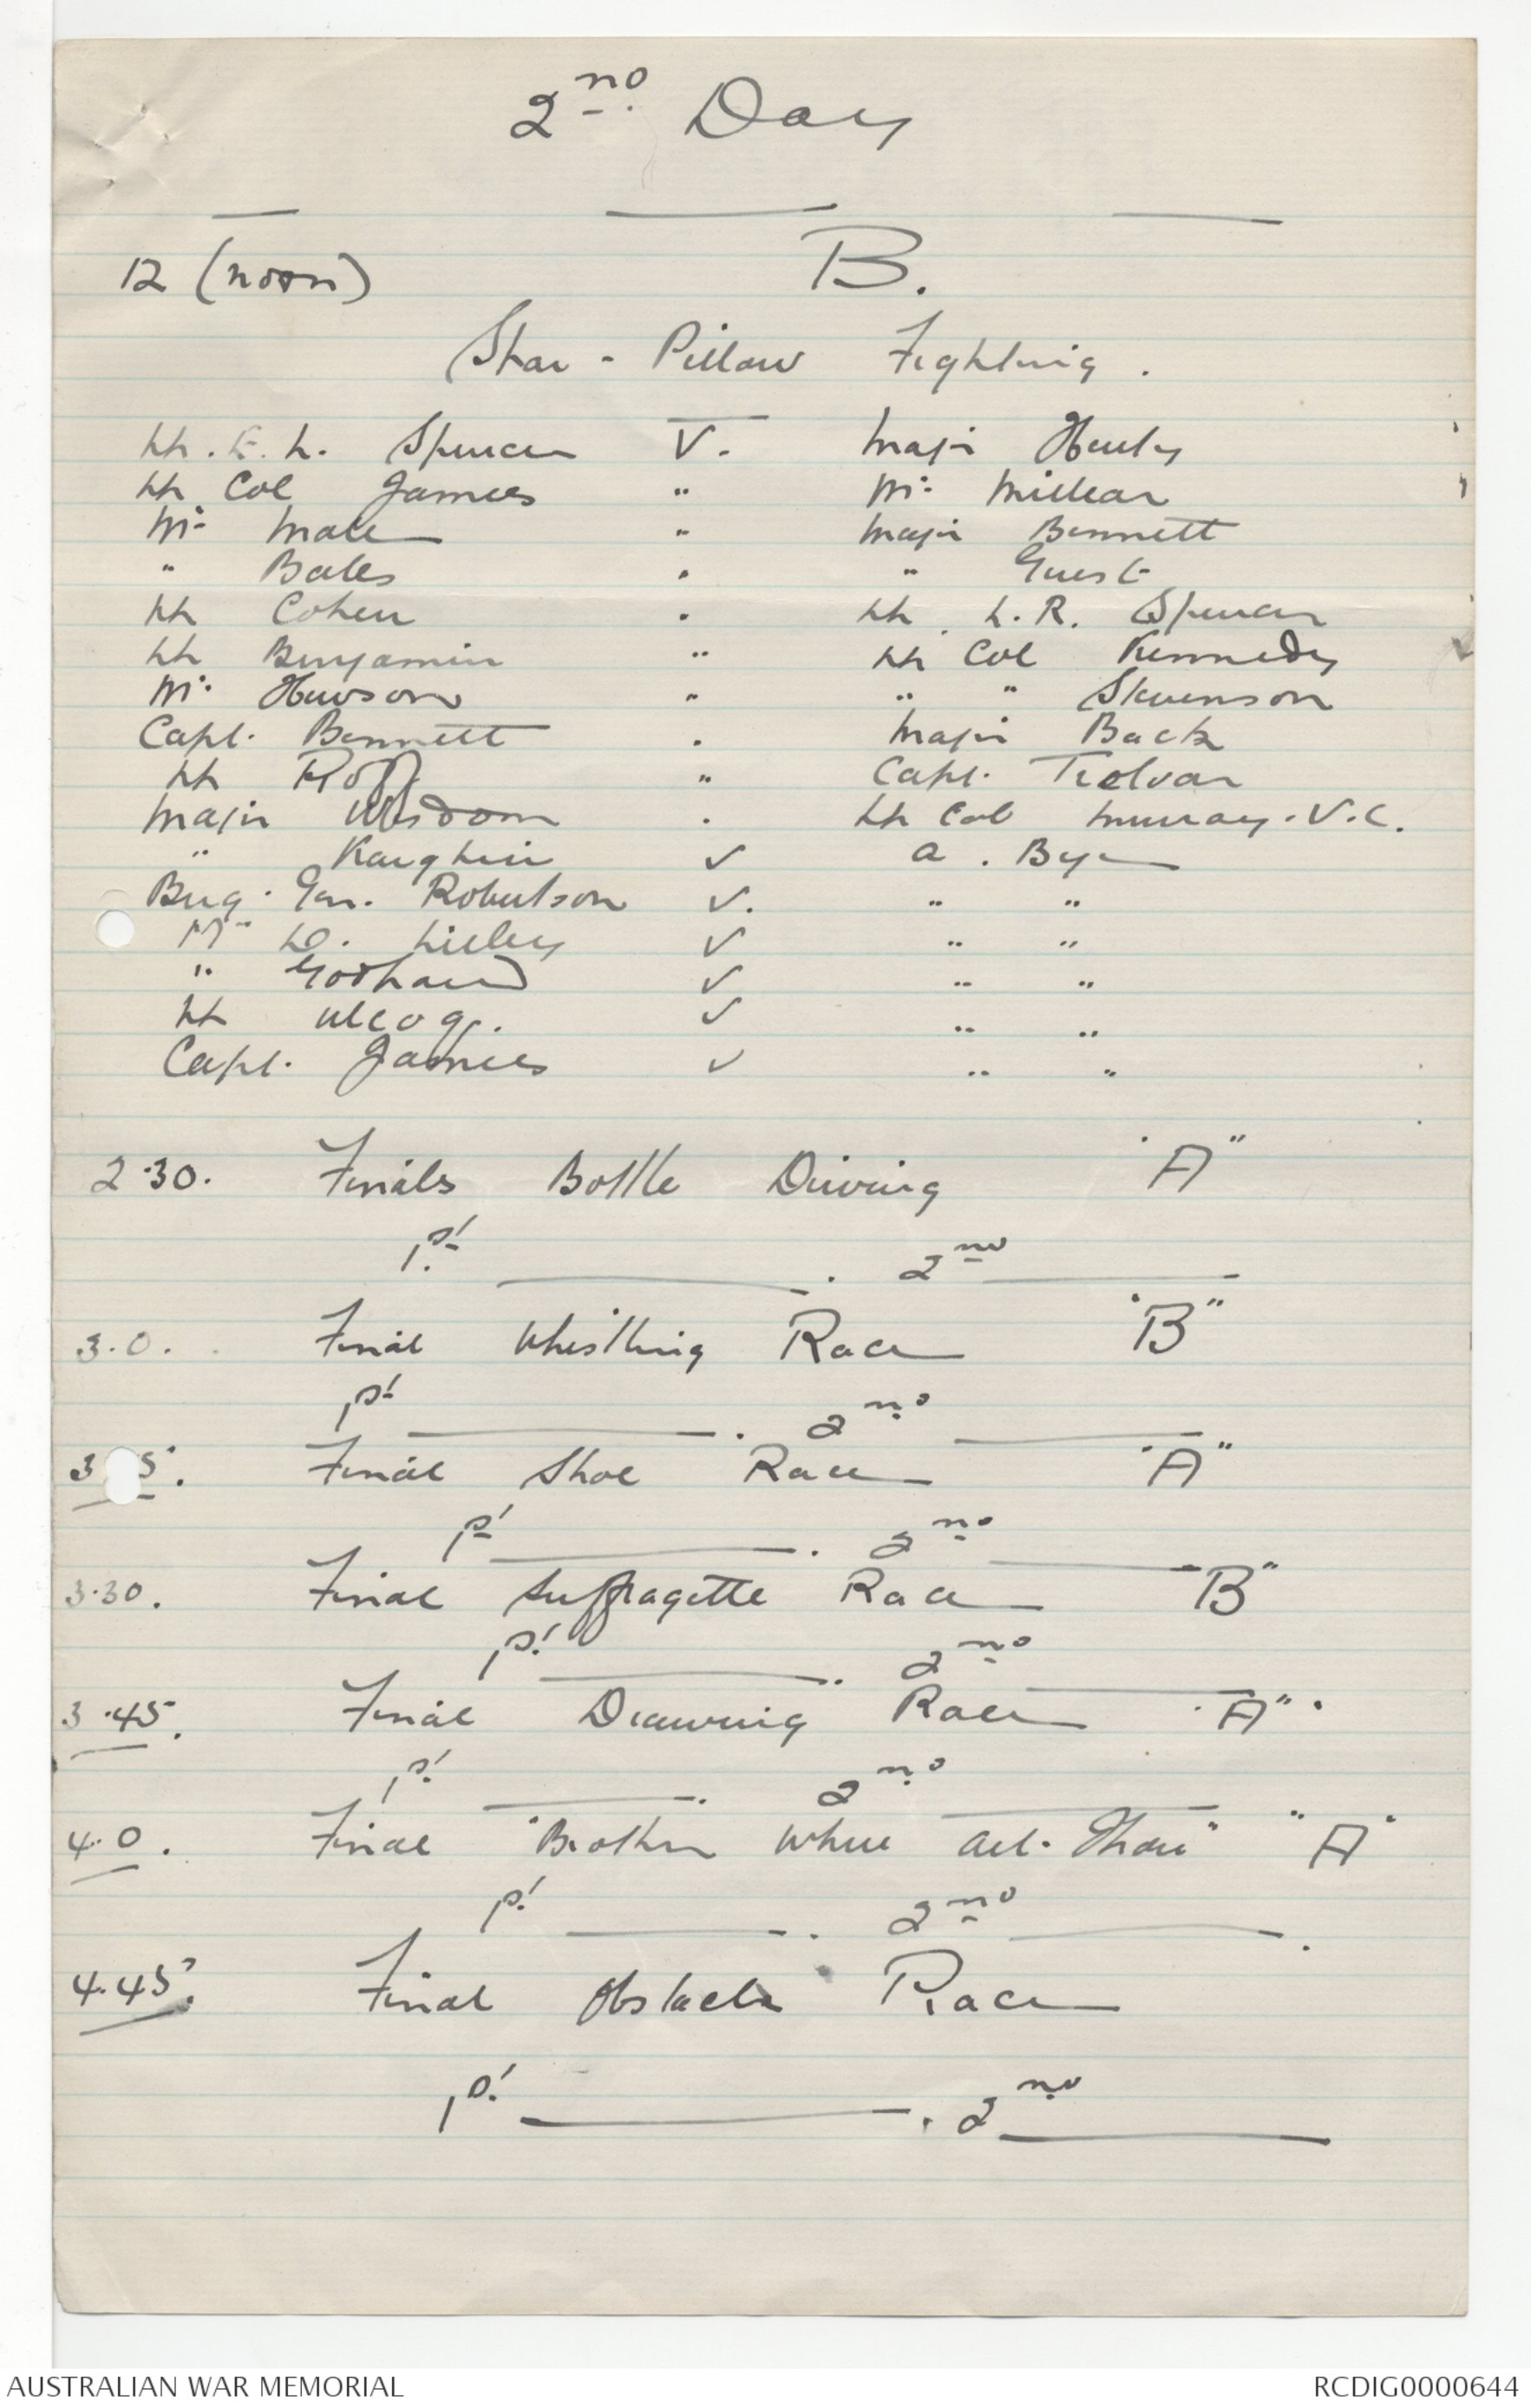 2nd Day
12 (noon) B.
Spar - Pillow Fighting.
Lt. E. L. Spencer V. Major Henly
Lt Col James " Mr Millear
Mr Male " Major Bennett
" Bates " " Guest
Lt Cohen " Lt. L. R. Spencer
Lt Benjamin " Lt Col Kennedy
Mr Hewson " " " Stevenson
Capt. Bennett " Major Back
Lt Roff " Capt. Treloar
Major Wisdom " Lt Col Murray. V.C.
" V a. Bye
Brig. Gen. Robertson V. " "
Mr D. Lilley V " "
" Godhard V " "
Lt V " "
Capt. James V " "
2.30. Finals Bottle Driving "A"
1st. 2nd
3.0. Final Whistling Race "B"
1st. 2nd
3 5. Final Shoe Race "A"
1st. 2nd
3.30. Final Suffragette Race "B"
1st. 2nd
3.45. Final Drawing Race "A".
1st. 2nd
4.0. Final "Brother Where Art Thou" "A"
1st. 2nd
4.45. Final Obstacle Race
1st. 2nd
AUSTRALIAN WAR MEMORIAL RCDIG0000644